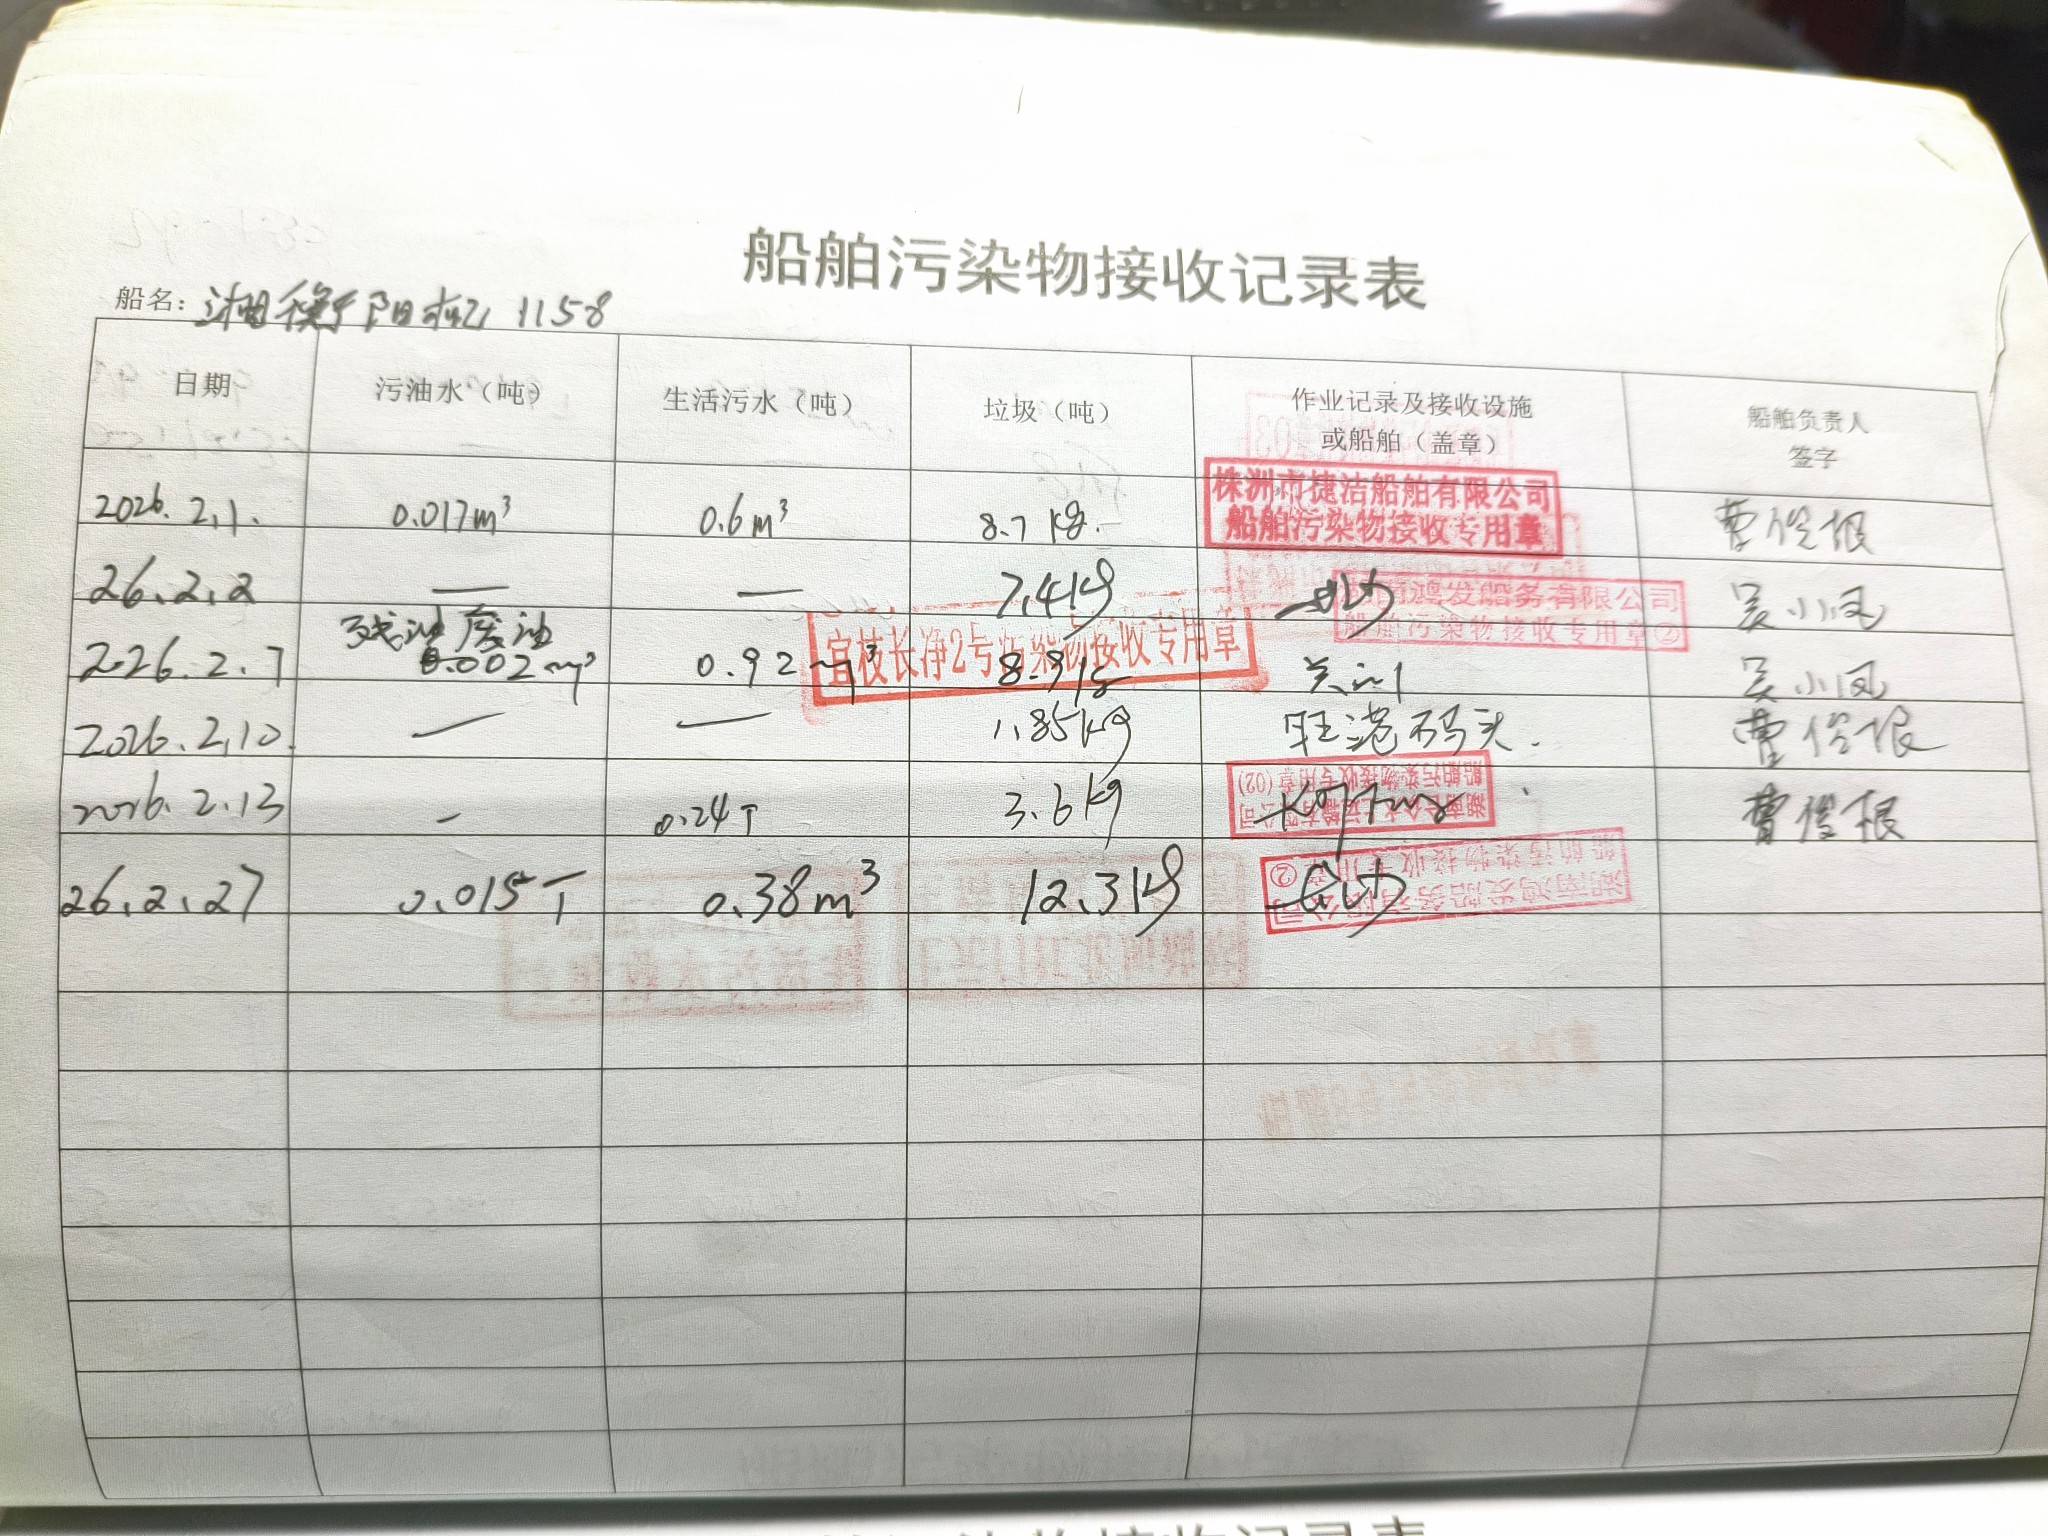 船舶污染物接收记录表
船名：湘衡阳机1158
日期 污油水（吨） 生活污水（吨） 垃圾（吨） 作业记录及接收设施或船舶（盖章） 船舶负责人签字
2026.2.1. 0.017m³ 0.6m³ 8.7kg. 株洲市捷洁船舶有限公司
船舶污染物接收专用章 曹俊根
26.2.2 — — 7.4kg 鸿发船务有限公司
船舶污染物接收专用章② 吴小凤
残油废油
2026.2.7 0.002m³ 0.92m³ 8.9kg 宜枝长净2号污染物接收专用章 吴小凤
2026.2.10. — — 1.85kg 旺港码头. 曹俊根
2026.2.13 - 0.24T 3.6kg 船舶污染物接收专用章(02) 曹俊根
26.2.27 0.015T 0.38m³ 12.3kg 湖南鸿发船务有限公司
船舶污染物接收专用章②
船舶污染物接收记录表